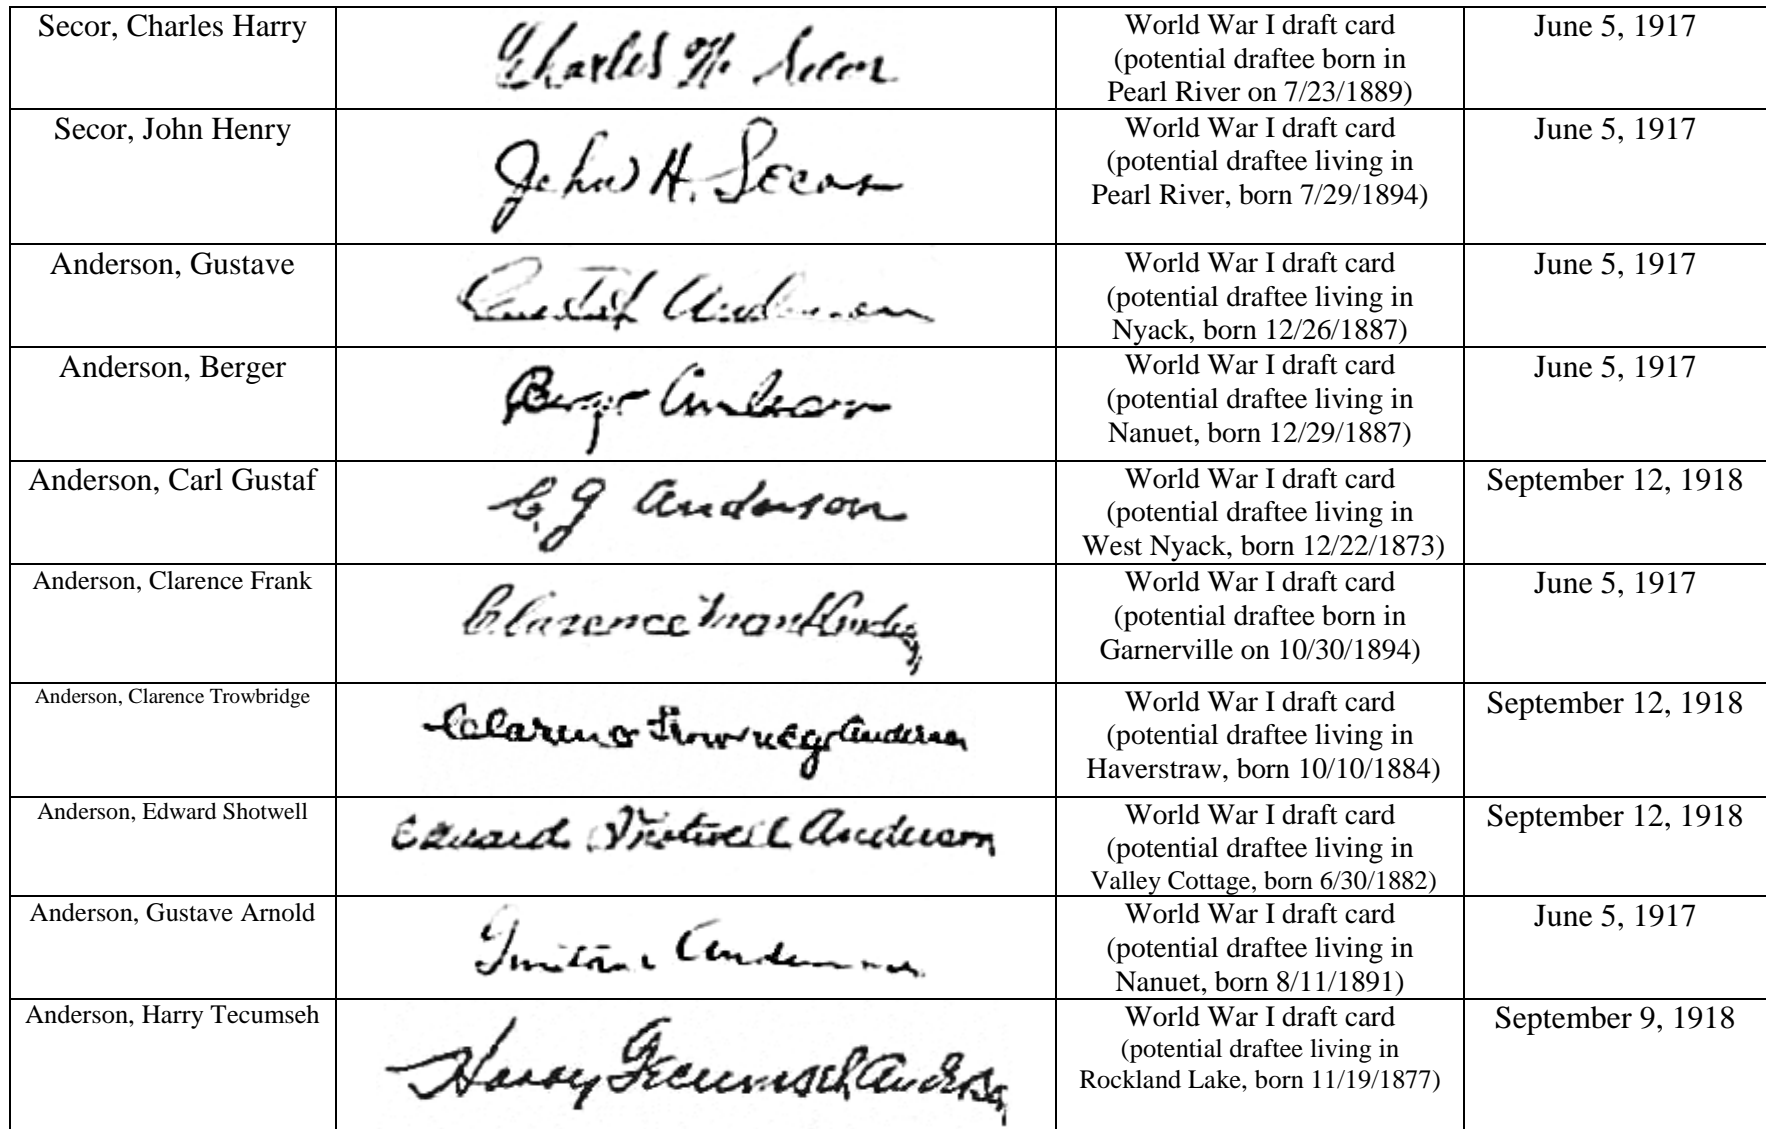 Secor, Charles Harry
Charles H. Secor
World War I draft card
(potential draftee born in
Pearl River on 7/23/1889)
June 5, 1917
Secor, John Henry
John H. Secor
World War I draft card
(potential draftee living in
Pearl River, born 7/29/1894)
June 5, 1917
Anderson, Gustave
Gustaf Anderson
World War I draft card
(potential draftee living in
Nyack, born 12/26/1887)
June 5, 1917
Anderson, Berger
Berger Anderson
World War I draft card
(potential draftee living in
Nanuet, born 12/29/1887)
June 5, 1917
Anderson, Carl Gustaf
C. G Anderson
World War I draft card
(potential draftee living in
West Nyack, born 12/22/1873)
September 12, 1918
Anderson, Clarence Frank
Clarence Frank
World War I draft card
(potential draftee born in
Garnerville on 10/30/1894)
June 5, 1917
Anderson, Clarence Trowbridge
Clarence Anderson
World War I draft card
(potential draftee living in
Haverstraw, born 10/10/1884)
September 12, 1918
Anderson, Edward Shotwell
Edward Shotwell Anderson
World War I draft card
(potential draftee living in
Valley Cottage, born 6/30/1882)
September 12, 1918
Anderson, Gustave Arnold
Gustave Anderson
World War I draft card
(potential draftee living in
Nanuet, born 8/11/1891)
June 5, 1917
Anderson, Harry Tecumseh
Harry Tecumseh Anderson
World War I draft card
(potential draftee living in
Rockland Lake, born 11/19/1877)
September 9, 1918